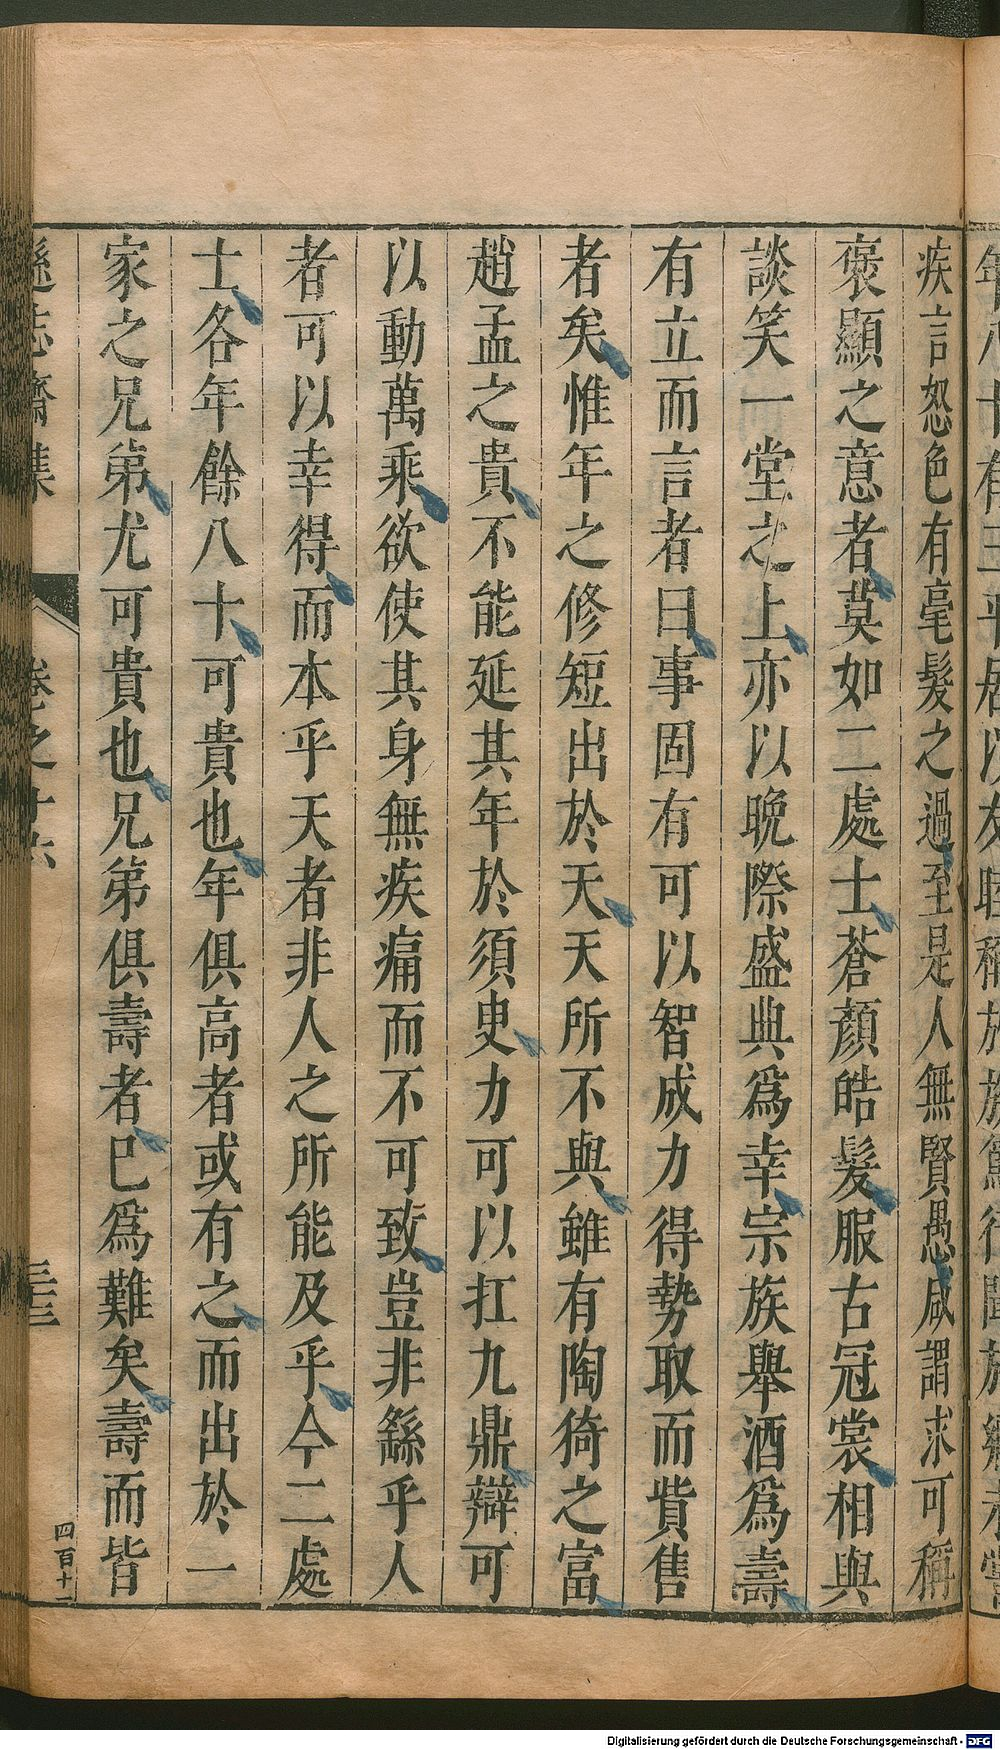 疾言怒色有毫髮之過至是人無賢愚咸謂求可稱
褒顯之意者莫如二處士蒼顏皓髮服古冠裳相與
談笑一堂之上亦以晚際盛典爲幸宗族舉酒爲壽
有立而言者曰事固有可以智成力得勢取而貲售
者矣惟年之修短出於天天所不與雖有陶猗之富
趙孟之貴不能延其年於須臾力可以扛九鼎辯可
以動萬乘欲使其身無疾痛而不可致豈非繇乎人
者可以幸得而本乎天者非人之所能及乎今二處
士各年餘八十可貴也年俱高者或有之而出於一
家之兄弟尤可貴也兄弟俱壽者已爲難矣壽而皆
遜志齋集 卷之十六 三十三 四百十二
Digitalisierung gefördert durch die Deutsche Forschungsgemeinschaft - DFG